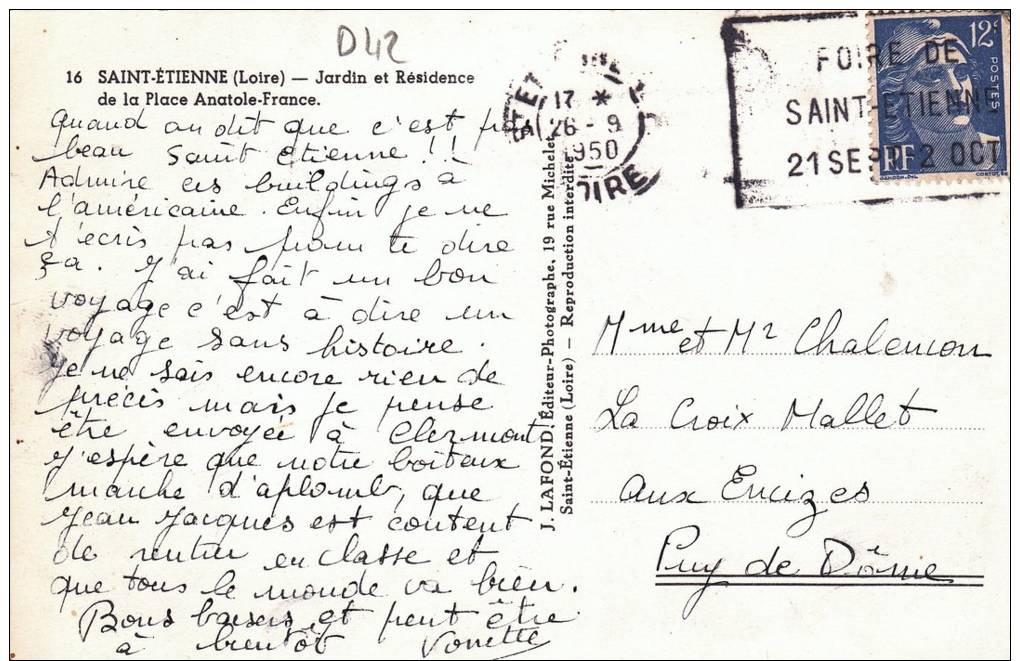 D42
16 SAINT-ÉTIENNE (Loire) — Jardin et Résidence
de la Place Anatole-France.
Quand on dit que c'est pas
beau Saint Etienne !!
Admire ces buildings à
l'américaine. Enfin je ne
t'écris pas pour te dire
ça. J'ai fait un bon
voyage c'est à dire un
voyage sans histoire.
Je ne sais encore rien de
précis mais je pense
être envoyée à Clermont
J'espère que notre boiteux
marche d'aplomb, que
Jean Jacques est content
de rentrer en classe et
que tous le monde va bien.
Bons baisers et peut être
à bientôt Vonette
J. LAFOND, Éditeur-Photographe, 19 rue Michelet
Saint-Étienne (Loire) — Reproduction interdite
17 *
26 - 9
1950
LOIRE
FOIRE DE
SAINT-ETIENNE
21 SEPT 2 OCT
12F
POSTES
RF
Mme et Mr Chalencon
La Croix Mallet
aux Ancizes
Puy de Dôme